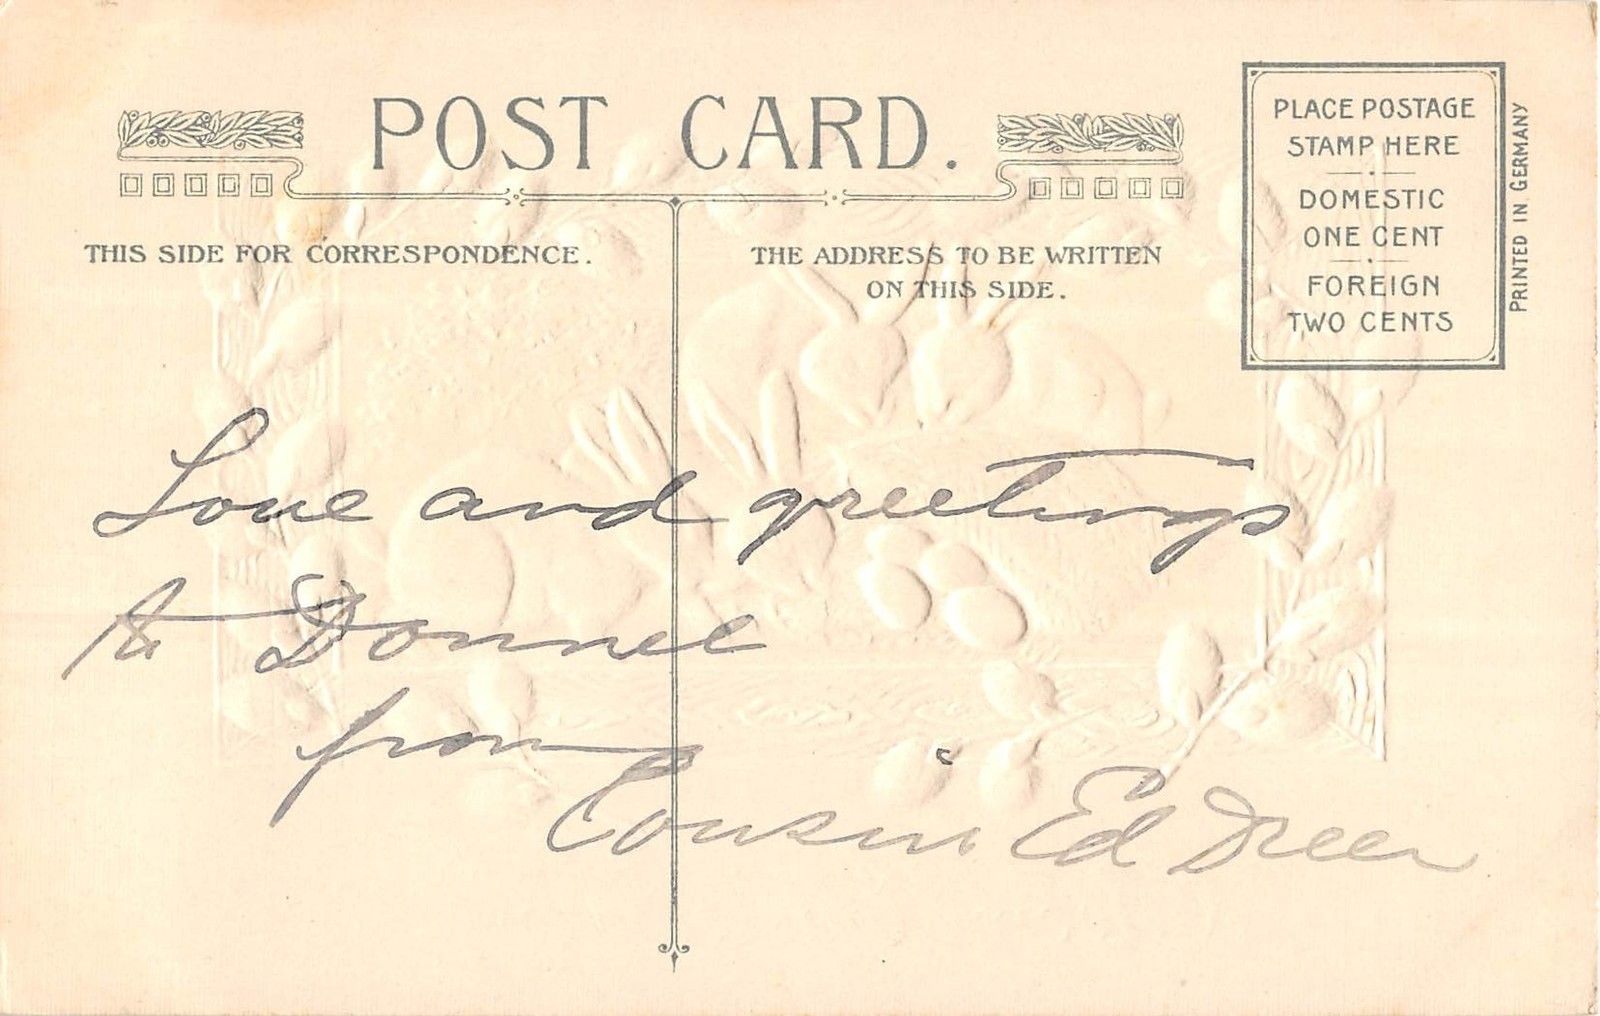 POST CARD.
THIS SIDE FOR CORRESPONDENCE.
THE ADDRESS TO BE WRITTEN
ON THIS SIDE.
PLACE POSTAGE
STAMP HERE
DOMESTIC
ONE CENT
FOREIGN
TWO CENTS
PRINTED IN GERMANY
Love and greetings
to Donnel
from
Cousin Ed Dreer